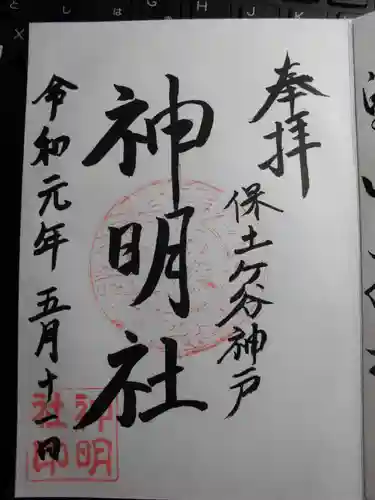 奉拝
保土ケ谷神戸
神明社
令和元年五月十一日
神明
社印